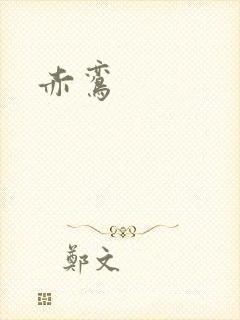 赤鸾
鄭文